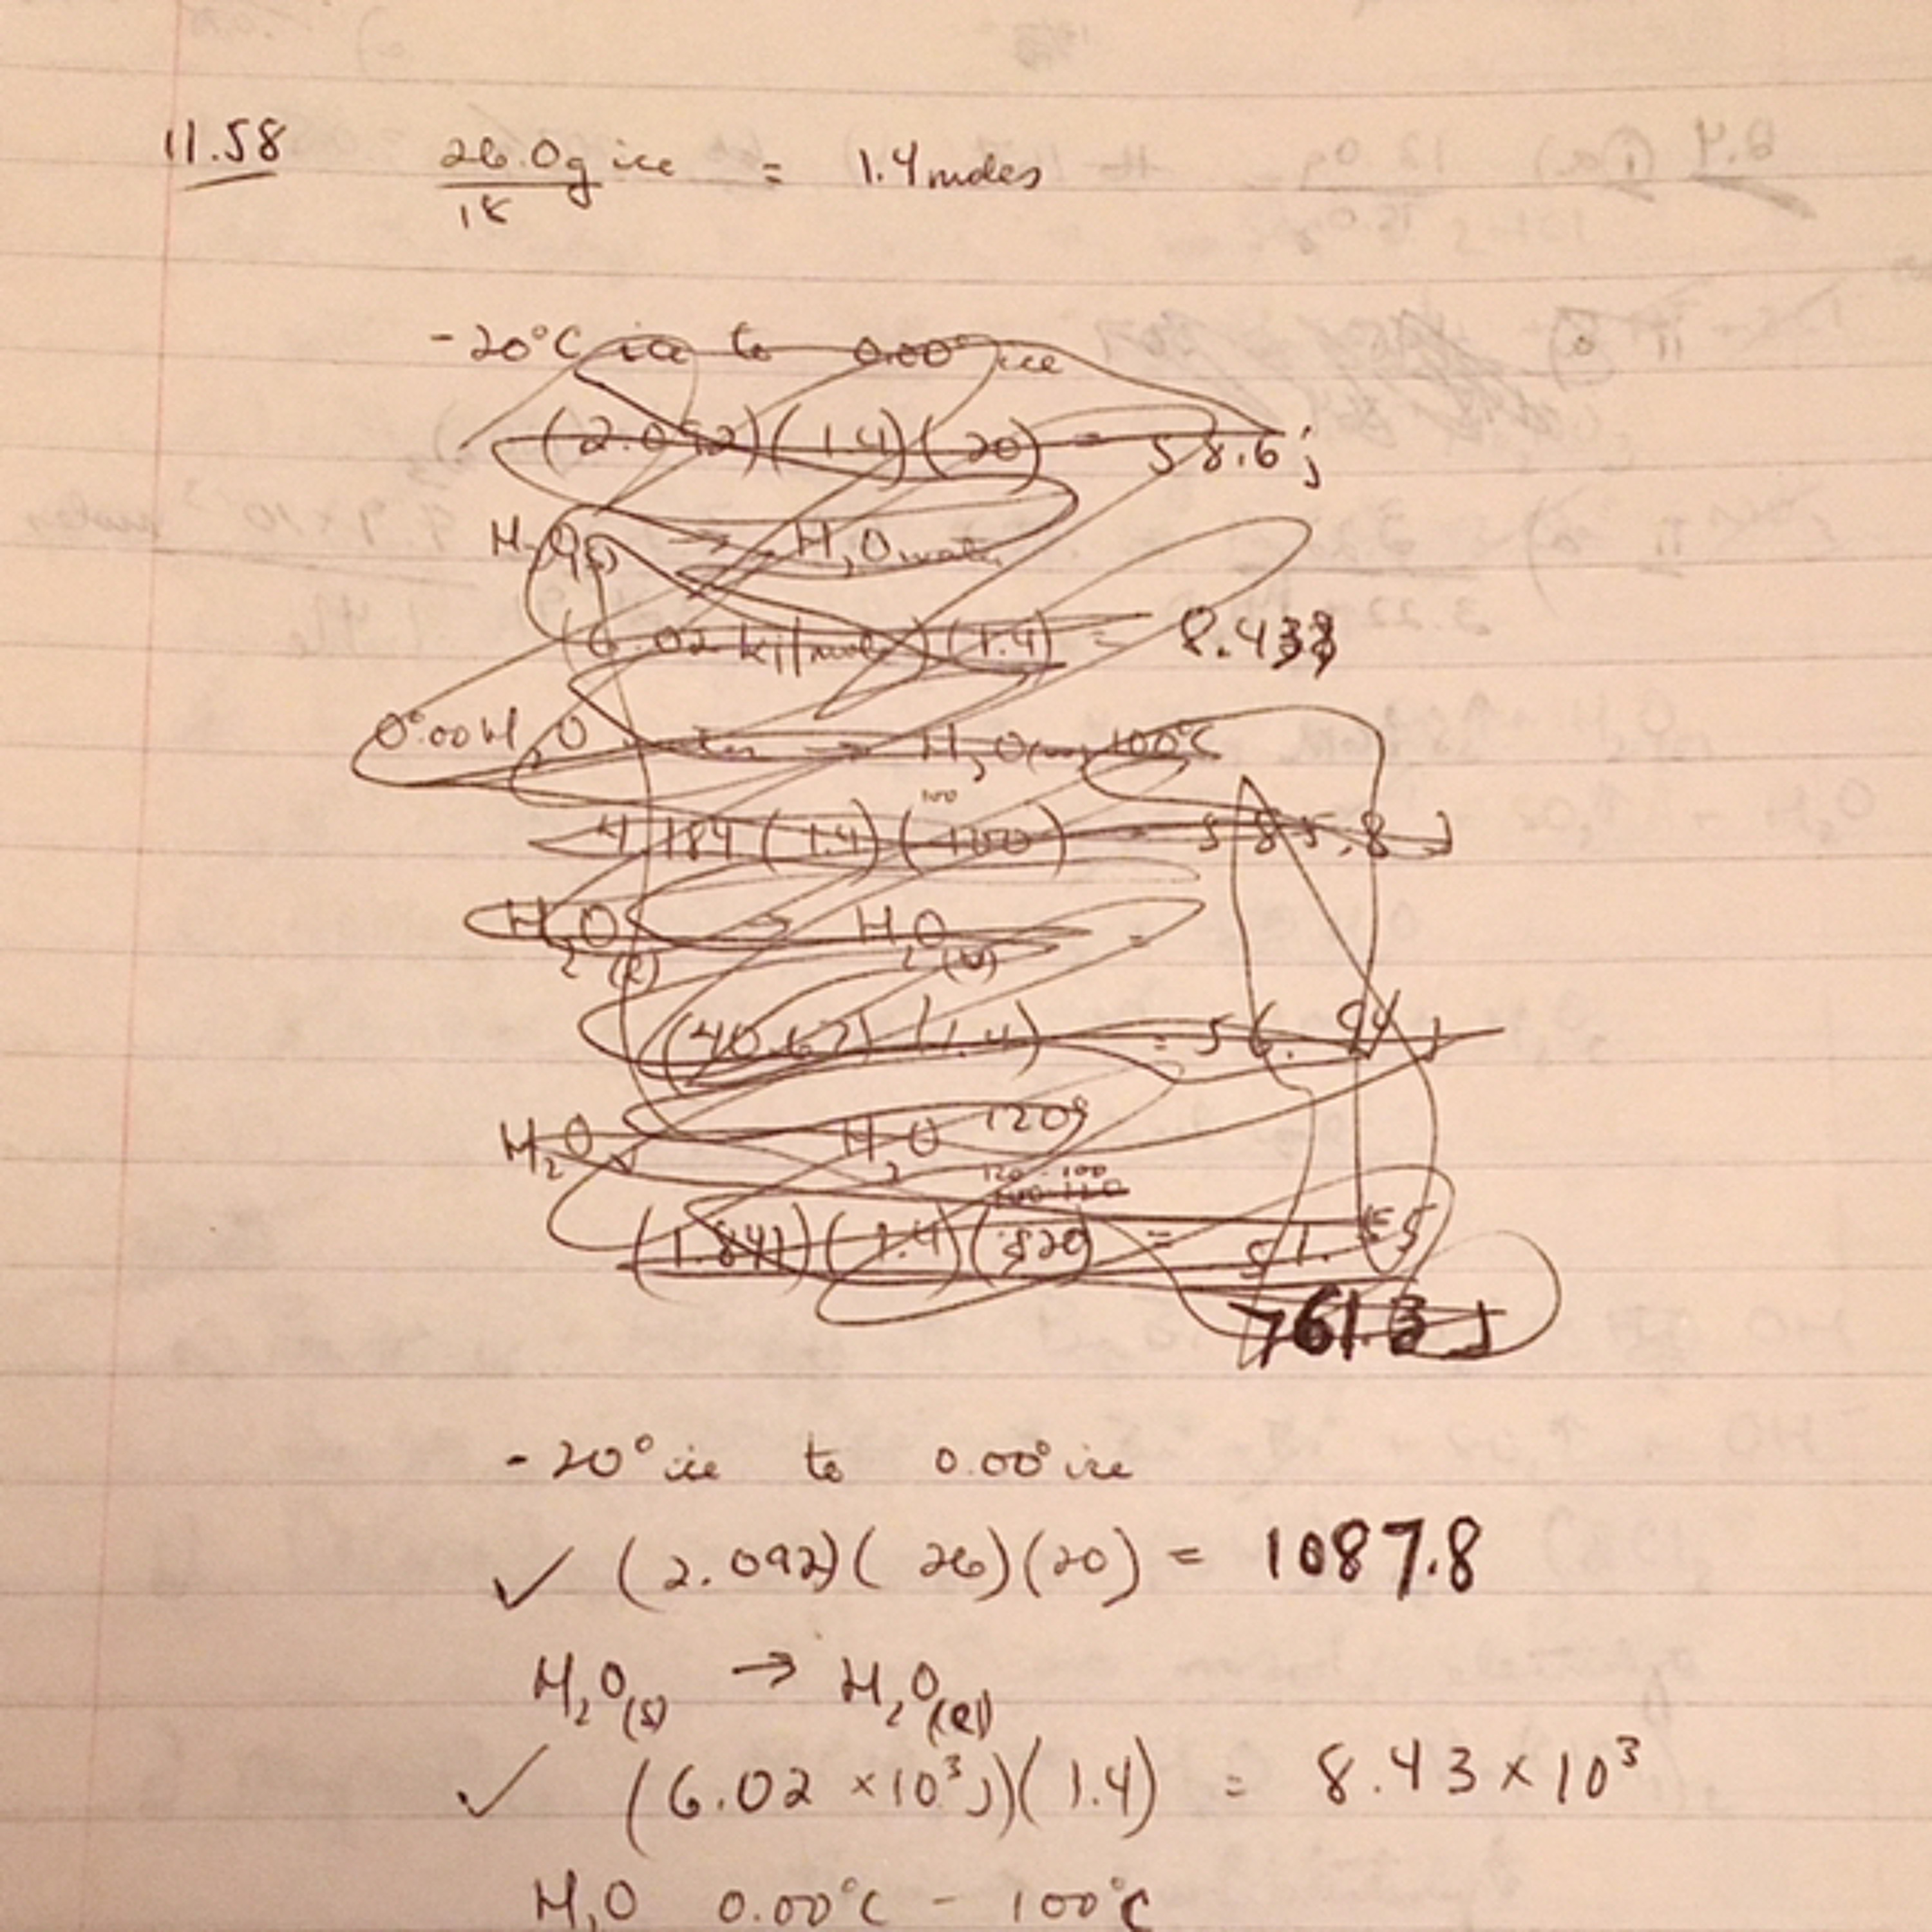 11.58 26.0g ice = 1.4 moles
18
-20°C ice to 0.00° ice
(2.092)(1.4)(20) = 58.6 j
H2O(s) → H2O
(6.02 kj/mole)(1.4) = 8.433
0.00 H2O → H2O 100°C
100
4.184 (1.4)(100) = 585.8 J
H2O(l) → H2O
(40.67)(1.4) = 56.94 J
H2O H2O 120°
120-100
(1.841)(1.4)(20) = 51.55
761.3 J
-20° ice to 0.00° ice
✓ (2.092)(26)(20) = 1087.8
H2O(s) → H2O(l)
✓ (6.02 ×10³ J)(1.4) = 8.43 × 10³
H2O 0.00°C - 100°C